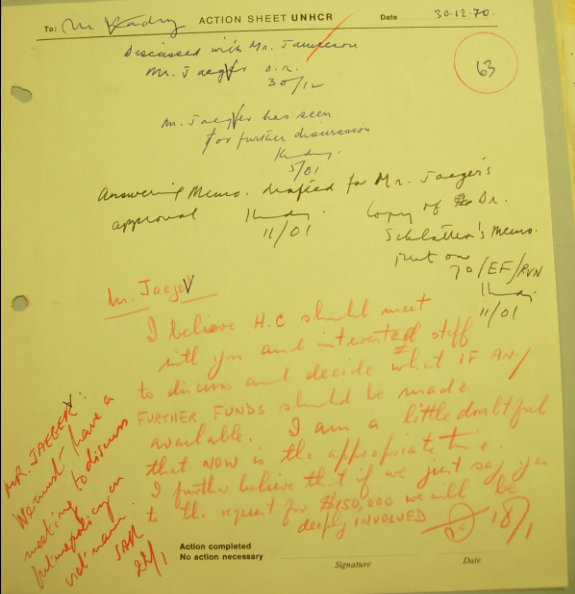 To: Mr Kadry ACTION SHEET UNHCR Date 30.12.70.
63
Discussed with Mr. Jameson
Mr. Jaeger o.r.
30/12
Mr. Jaeger has seen
for further discussion
5/01
Answering Memo. drafted for Mr. Jaeger's
approval
11/01
Copy of Dr.
Schlatter's Memo.
put on
70/EF/RVN
11/01
Mr. Jaeger
I believe H.C should meet
with you and interested staff
to discuss and decide what IF ANY
FURTHER FUNDS should be made
available. I am a little doubtful
that NOW is the appropriate time.
I further believe that if we just say yes
to the request for $150,000 we will be
deeply INVOLVED
18/1
MR. JAEGER:
We must have a
meeting to discuss
future policy on
Viet nam.
SAR
22/1
Action completed
No action necessary
Signature
Date